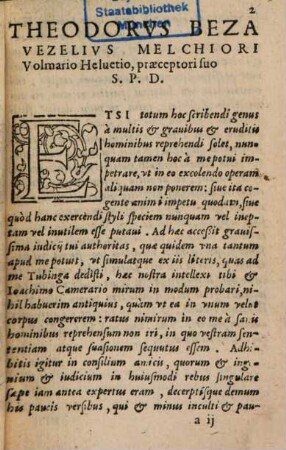 Staatsbibliothek
München
2
THEODORVS BEZA
VEZELIVS MELCHIORI
Volmario Heluetio, præceptori suo
S. P. D.
ETSI totum hoc scribendi genus
à multis & grauibus & eruditis
hominibus reprehendi solet, nun
quam tamen hoc à me potui im-
petrare, vt in eo excolendo operam
aliquam non ponerem: siue ita co
gente animi impetu quodam, siue
quòd hanc exercendi styli speciem nunquam vel inep
tam vel inutilem esse putaui. Ad hæc accessit grauis-
sima iudicij tui authoritas, quæ quidem vna tantum
apud me potuit, vt simulatque ex iis literis, quas ad
me Tubinga dedisti, hæc nostra intellexi tibi &
Ioachimo Camerario mirum in modum probari, ni-
hil habuerim antiquius, quàm vt ea in vnum velut
corpus congererem: ratus nimirum in eo me à sanis
hominibus reprehensum non iri, in quo vestram sen-
tentiam atque suasionem sequutus essem. Adhi-
bitis igitur in consilium amicis, quorum & inge-
nium & iudicium in huiusmodi rebus singulare
sæpe iam antea expertus eram, decerptisque demum
his paucis versibus, qui & minus inculti & pau-
a ij